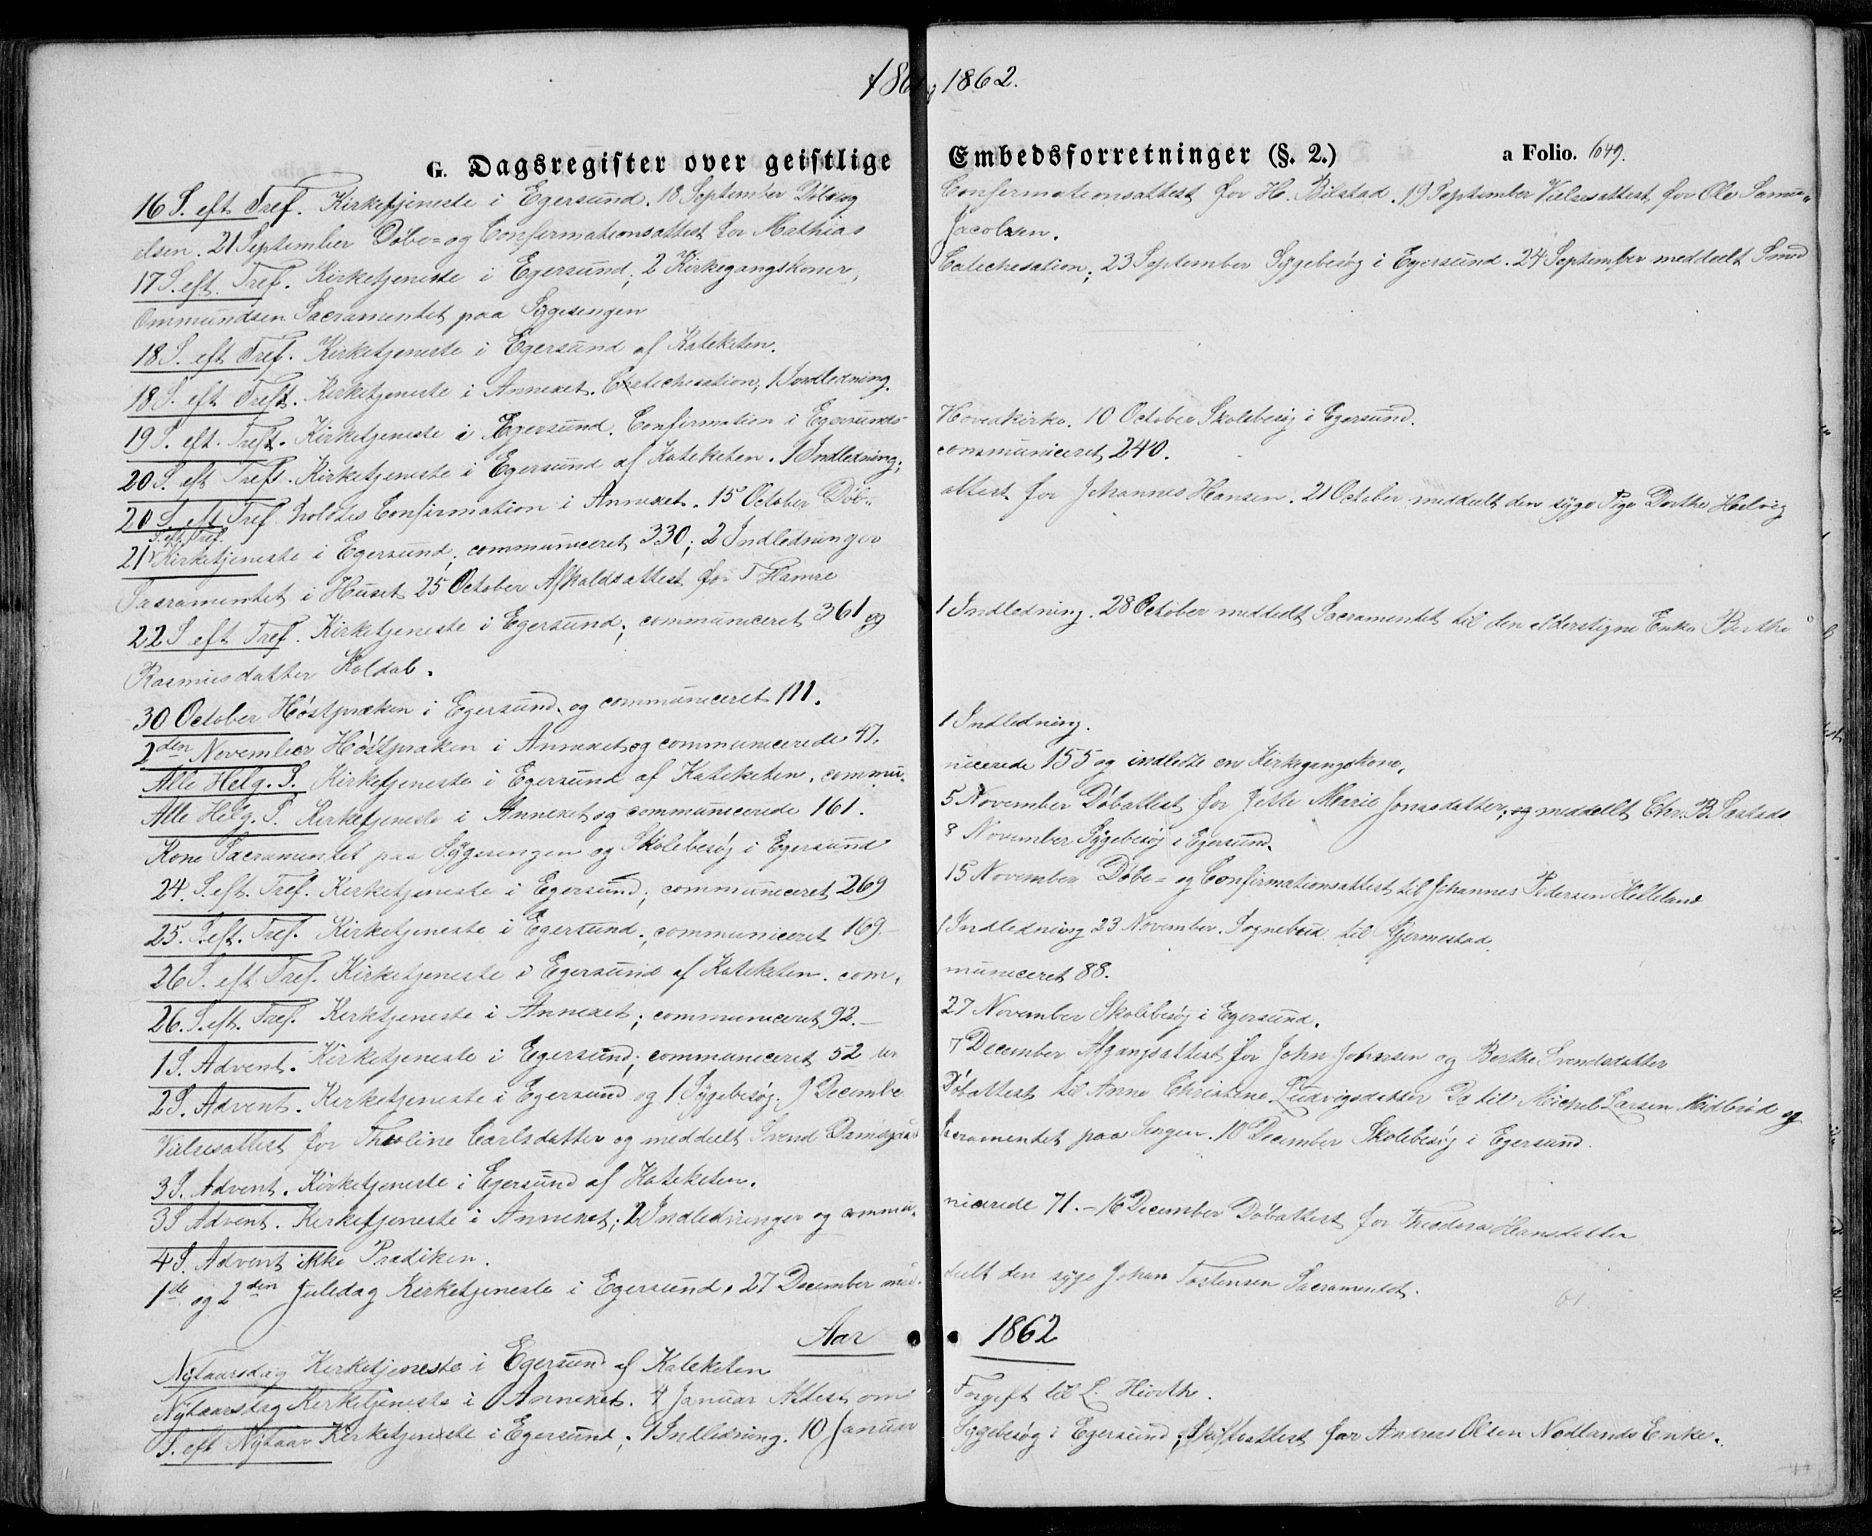 1861 & 1862.
G. Dagsregister over geistlige Embedsforretninger (§. 2.) a Folio. 649.
16 S. eft Tref. Kirketjeneste i Egersund. 18 September Døbe og Confirmationsattest for H. Bilstad. 19 September Vielsesattest for Ole Samu=
elsen. 21 September Døbe= og Confirmationsattest for Mathias Jacobsen.
17 S. eft. Tref. Kirketjeneste i Egersund; 2 Kirkegangskoner, Catechesation; 23 September Sygebesøg i Egersund. 24 September meddeelt
Ommundsen Sacramentet paa Sygesengen
18 S. eft Tref. Kirketjeneste i Egersund af Kateketen.
18 S. eft Treft. Kirketjeneste i Annexet. Catechesation, 1 Indledning.
19 S. eft. Treft. Kirketjeneste i Egersund. Confirmation i Egersunds Hovedkirke. 10 October Skolebesøg i Egersund.
20 S. eft Tref. Kirketjeneste i Egersund af Kateketen. 1 Indledning; communiceret 240.
20 S. eft Tref. holdtes Confirmation i Annexet. 15 October Døb= attest for Johannes Hansen. 21 October meddeelt den syge Pige Dorthe Helvig
21 S. eft. Tref. Kirketjeneste i Egersund; communiceret 330; 2 Indledninger
Sacramentet i Huset 25 October Afkaldsattest for T Hamre
22 S. eft Tref. Kirketjeneste i Egersund; communiceret 361 og 1 Indledning. 28 October meddeelt Sacramentet til den alderstegne Enke Berthe
Rasmusdatter Koldal.
30 October Høstpræken i Egersund og communiceret 111. 1 Indledning.
2den November Høstpræken i Annexet og communicerede 47.
Alle Helg. S. Kirketjeneste i Egersund af Kateketen, commu= nicerede 155 og indledte en Kirkegangskone,
Alle Helg. S. Kirketjeneste i Annexet og communicerede 161. 5 November Døbattest for Jette Marie Jonasdatter, og meddeelt Chr. B. Sæstads
Kone Sacramentet paa Sygesengen og Skolebesøg i Egersund 8 November Sygebesøg i Egersund.
24. S. eft. Tref. Kirketjeneste i Egersund; communiceret 269 15 November Døbe= og Confirmationsattest til Johannes Pedersen Helleland
25. S. eft. Tref. Kirketjeneste i Egersund., communiceret 169.— 1 Indledning 23 November Sognebud til Gjermestad.
26 S. eft Tref. Kirketjeneste i Egersund af Kateketen. com= municeret 88.
26. S. eft. Tref. Kirketjeneste i Annexet; communiceret 92.— 27 November Skolebesøg i Egersund.
1 S. Advent. Kirketjeneste i Egersund; communiceret 52 7 December Afgangsattest for John Johnsen og Berthe Svendsdatter
2 S. Advent. Kirketjeneste i Egersund og 1 Sygebesøg. 9 Decembe Døbattest til Anne Christine Ludvigsdatter Do til Michel Larsen Midbrød og
Vielsesattest for Theoline Carlsdatter og meddeelt Svend Sacramentet paa Sengen. 10 December Skolebesøg i Egersund.
3 S. Advent. Kirketjeneste i Egersund af Kateketen.
3 S. Advent. Kirketjeneste i Annexet; 2 Indledninger og commu= nicerede 71. — 16 December Døbattest for Theodora Hansdatter
4 S. Advent ikke Prædiken.
1ste og 2den Juledag Kirketjeneste i Egersund, 27 December med= deelt den syge Johan Tostensen Sacramentet.
Aar 1862
Nytaarsdag Kirketjeneste i Egersund af Kateketen
Nytaarsdag Kirketjeneste i Annexet. 4 Januar Attest om Forgift til L. Hiorth.
S. eft Nytaar Kirketjeneste i Egersund; 1 Indledning. 10 Januar Sygebesøg i Egersund; Skifteattest for Andreas Olsen Nodlands Enke.